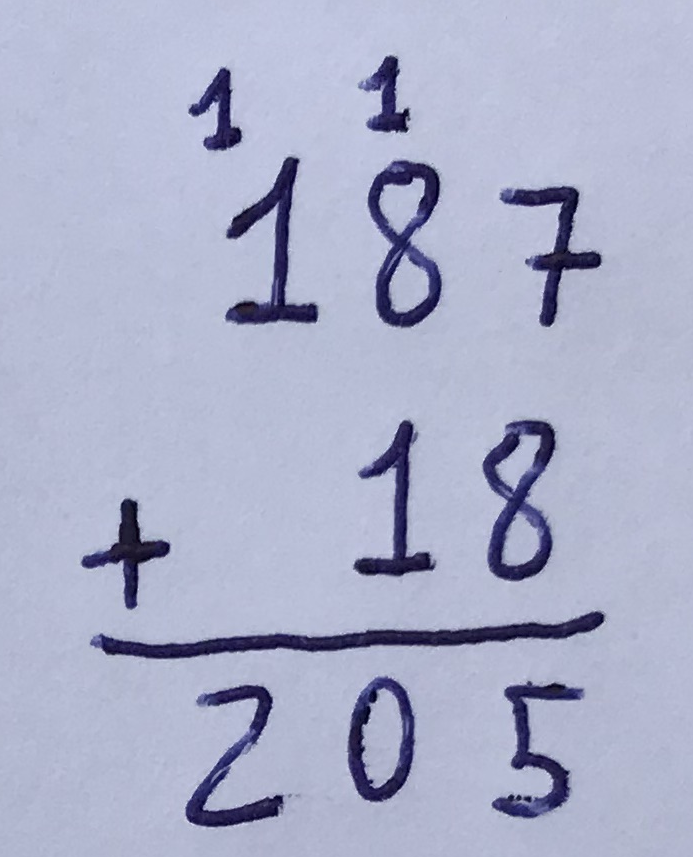 1 1
187
+ 18
205